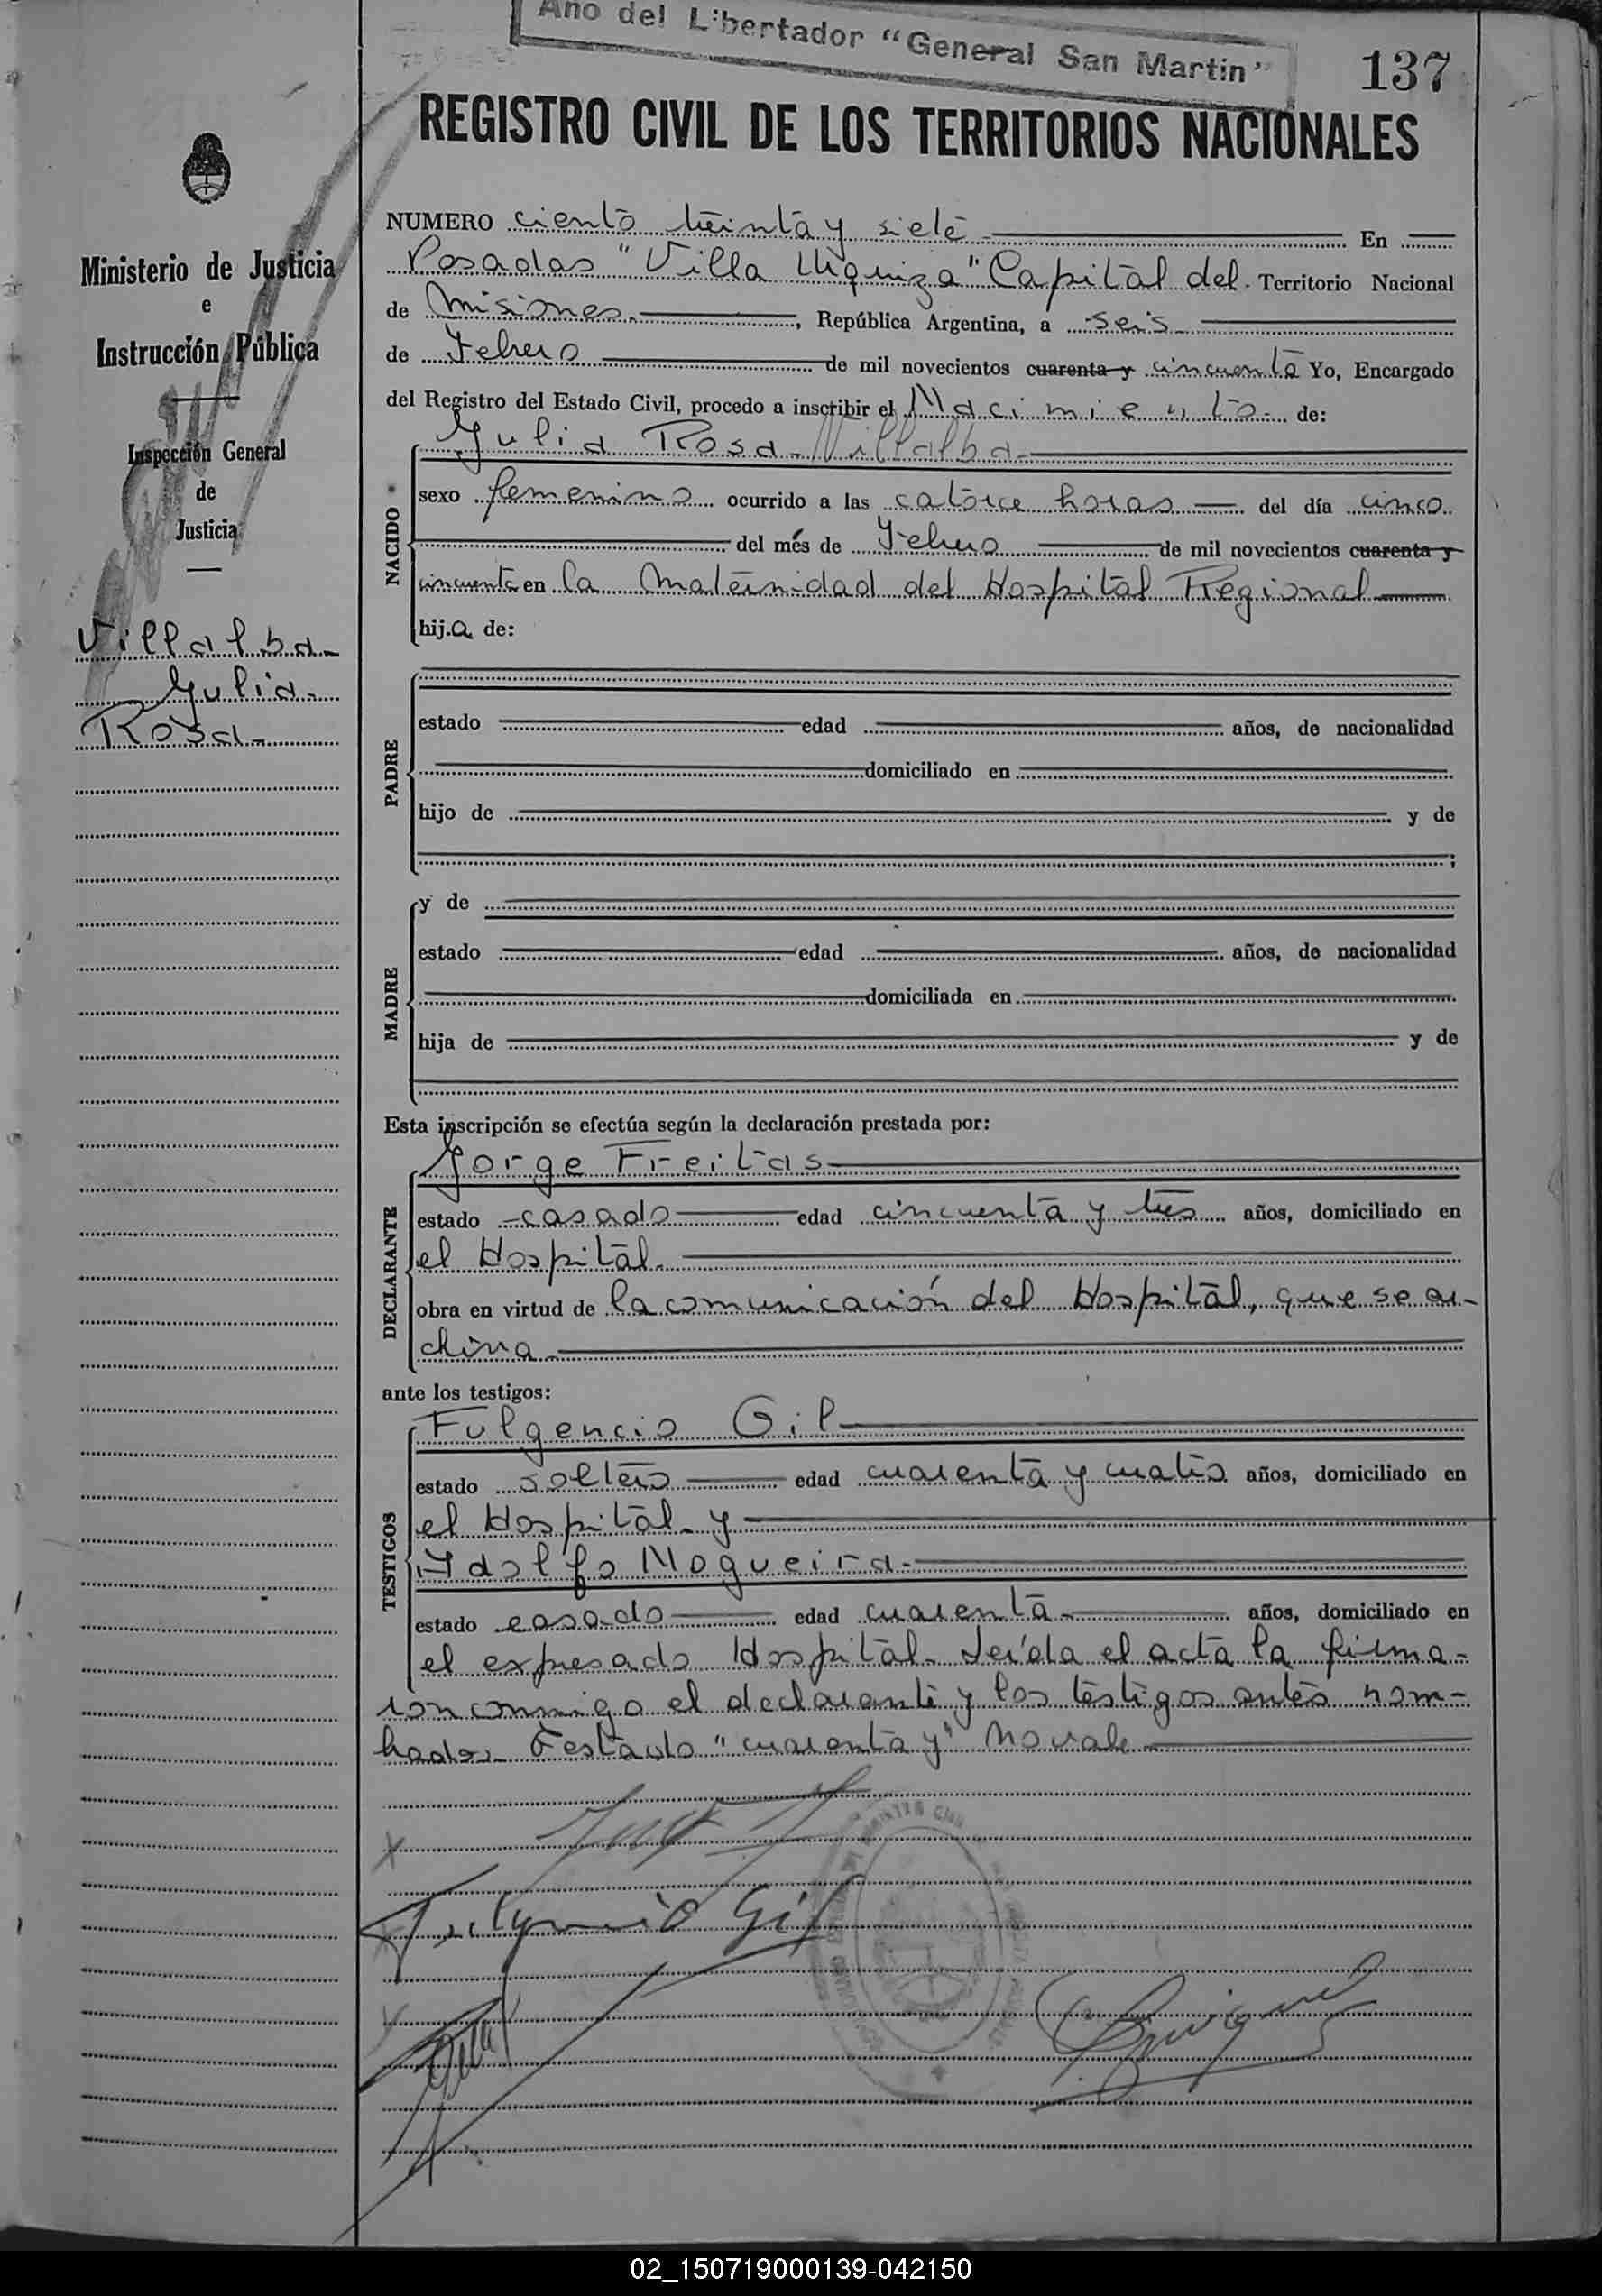 Año del Libertador "General San Martin"
137
REGISTRO CIVIL DE LOS TERRITORIOS NACIONALES
Ministerio de Justicia
e
Instrucción Pública
Inspección General
de
Justicia
Villalba
Julia
Rosa
NUMERO ciento treinta y siete En
Posadas "Villa Urquiza" Capital del Territorio Nacional
de Misiones, República Argentina, a seis
de Febrero de mil novecientos cuarenta y cincuenta Yo, Encargado
del Registro del Estado Civil, procedo a inscribir el Nacimiento de:
NACIDO
Julia Rosa Villalba
sexo femenino ocurrido a las catorce horas del día cinco
del més de Febrero de mil novecientos cuarenta y
cincuenta en la Maternidad del Hospital Regional
hij.a de:
PADRE
estado edad años, de nacionalidad
domiciliado en
hijo de y de
;
MADRE
y de
estado edad años, de nacionalidad
domiciliada en
hija de y de
Esta inscripción se efectúa según la declaración prestada por:
DECLARANTE
Jorge Freitas
estado casado edad cincuenta y tres años, domiciliado en
el Hospital.
obra en virtud de la comunicación del Hospital, que se ar-
chiva
ante los testigos:
TESTIGOS
Fulgencio Gil
estado soltero edad cuarenta y cuatro años, domiciliado en
el Hospital y
Adolfo Nogueira
estado casado edad cuarenta años, domiciliado en
el expresado Hospital. Leída el acta la firma-
ron conmigo el declarante y los testigos antes nom-
brados. Testado "cuarenta y" No vale
Fulgencio Gil
02_150719000139-042150